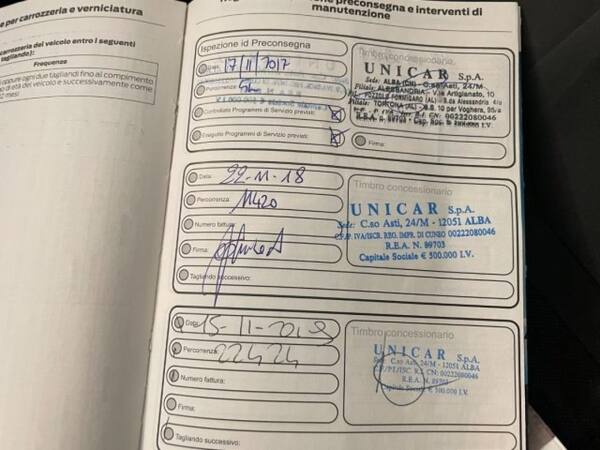 e per carrozzeria e verniciatura
carrozzeria del veicolo entro i seguenti
tagliando):
Frequenze
oppure ogni due tagliandi fino al compimento
no di età del veicolo e successivamente come
2 mesi
preconsegna e interventi di
manutenzione
Ispezione id Preconsegna
17/11/2017
Percorrenza:
Controllato Programmi di Servizio previsti:
Eseguito Programmi di Servizio previsti:
Timbro concessionario
UNICAR S.p.A.
Sede: ALBA (CN) C.so Asti, 24/M
Filiale: ALESSANDRIA - V.le Artigianato, 10
POZZOLO FORMIGARO (AL) - S.da Alessandria
TORTONA (AL) - S.S. 10 per Voghera, 95/a
00222080046
R.E.A. n. 89703 - Cap. Soc.
Firma:
Data: 22-11-18
Percorrenza: 11420
Numero fattura:
Firma:
Tagliando successivo:
Timbro concessionario
UNICAR S.p.A.
Sede: C.so Asti, 24/M - 12051 ALBA
C.F./P. IVA/ISCR. REG. IMPR. DI CUNEO 00222080046
R.E.A. N. 89703
Capitale Sociale € 500.000 I.V.
Data: 15-11-2019
Percorrenza: 22424
Numero fattura:
Firma:
Tagliando successivo:
Timbro concessionario
UNICAR S.p.A.
Sede: C.so Asti, 24/M - 12051 ALBA
C.F./P.I./ISC. R.I. CN: 00222080046
R.E.A. N. 89703
Capitale Sociale € 500.000 I.V.